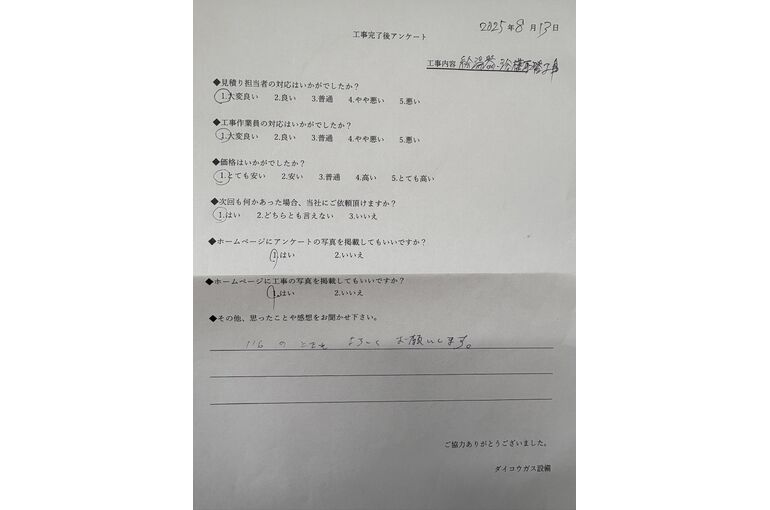 2025年8月13日
工事完了後アンケート
工事内容 給湯器・浴槽取替工事
◆見積り担当者の対応はいかがでしたか?
1.大変良い 2.良い 3.普通 4.やや悪い 5.悪い
◆工事作業員の対応はいかがでしたか?
1.大変良い 2.良い 3.普通 4.やや悪い 5.悪い
◆価格はいかがでしたか?
1.とても安い 2.安い 3.普通 4.高い 5.とても高い
◆次回も何かあった場合、当社にご依頼頂けますか?
1.はい 2.どちらとも言えない 3.いいえ
◆ホームページにアンケートの写真を掲載してもいいですか?
1.はい 2.いいえ
◆ホームページに工事の写真を掲載してもいいですか?
1.はい 2.いいえ
◆その他、思ったことや感想をお聞かせ下さい。
のときも よろしく お願いします。
ご協力ありがとうございました。
ダイコウガス設備